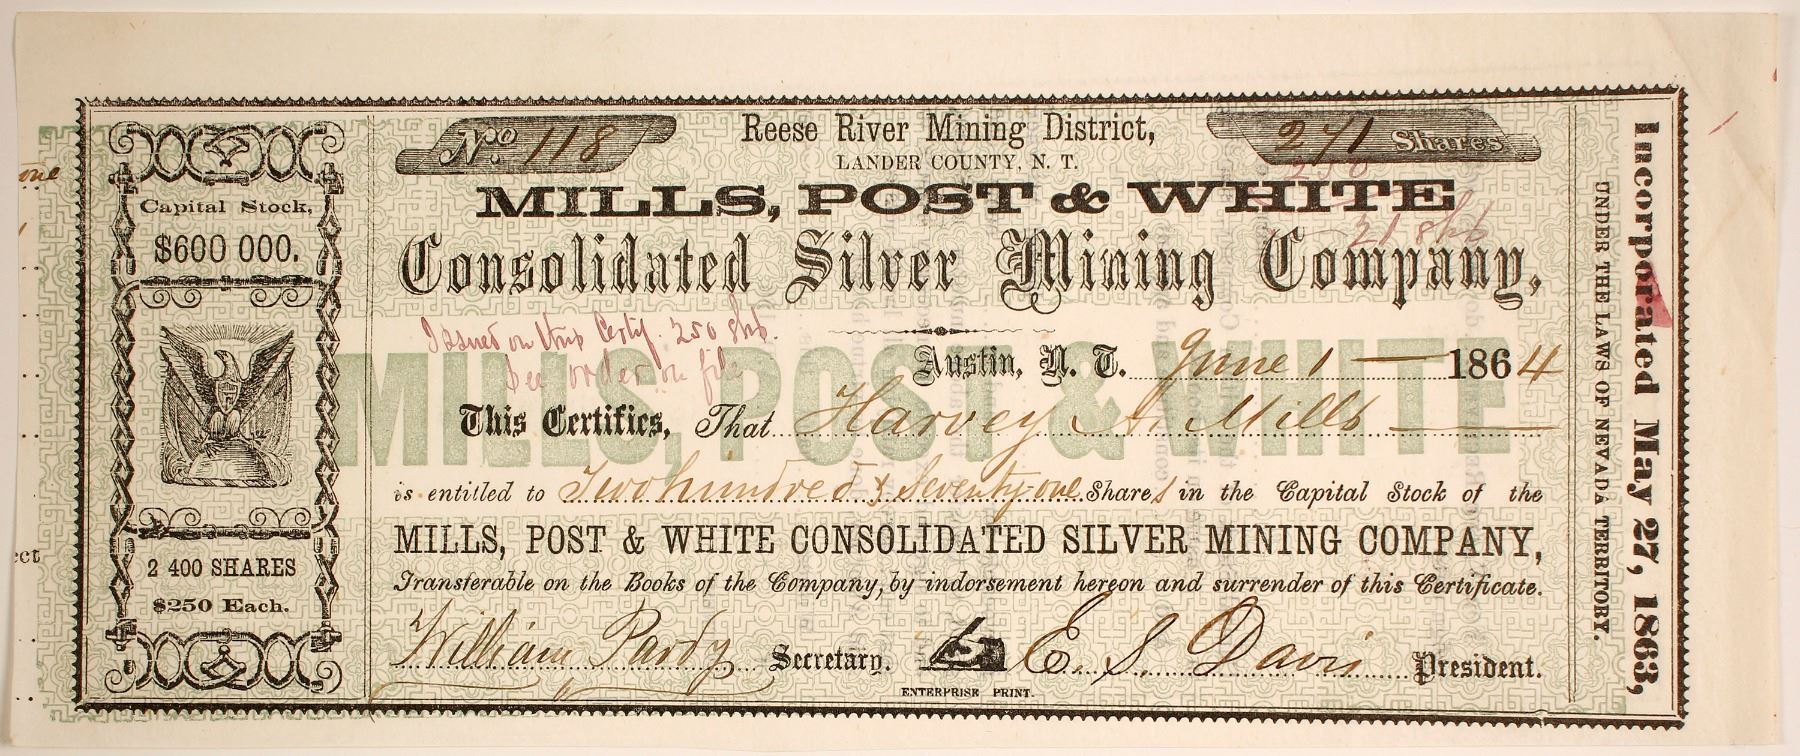 one
Capital Stock,
$600 000.
2 400 SHARES
$250 Each.
No 118
Reese River Mining District,
271 Shares
LANDER COUNTY, N. T.
250
MILLS, POST & WHITE
21 shs
Consolidated Silver Mining Company,
Issued on this Certif. 250 shs.
See order on file
MILLS, POST & WHITE
Austin, N. T. June 1 1864
This Certifies, That Harvey A. Mills
is entitled to Two hundred & Seventy-one Shares in the Capital Stock of the
MILLS, POST & WHITE CONSOLIDATED SILVER MINING COMPANY,
Transferable on the Books of the Company, by indorsement hereon and surrender of this Certificate.
William Pardy Secretary. E. S. Davis President.
ENTERPRISE PRINT.
UNDER THE LAWS OF NEVADA TERRITORY.
Incorporated May 27, 1863,